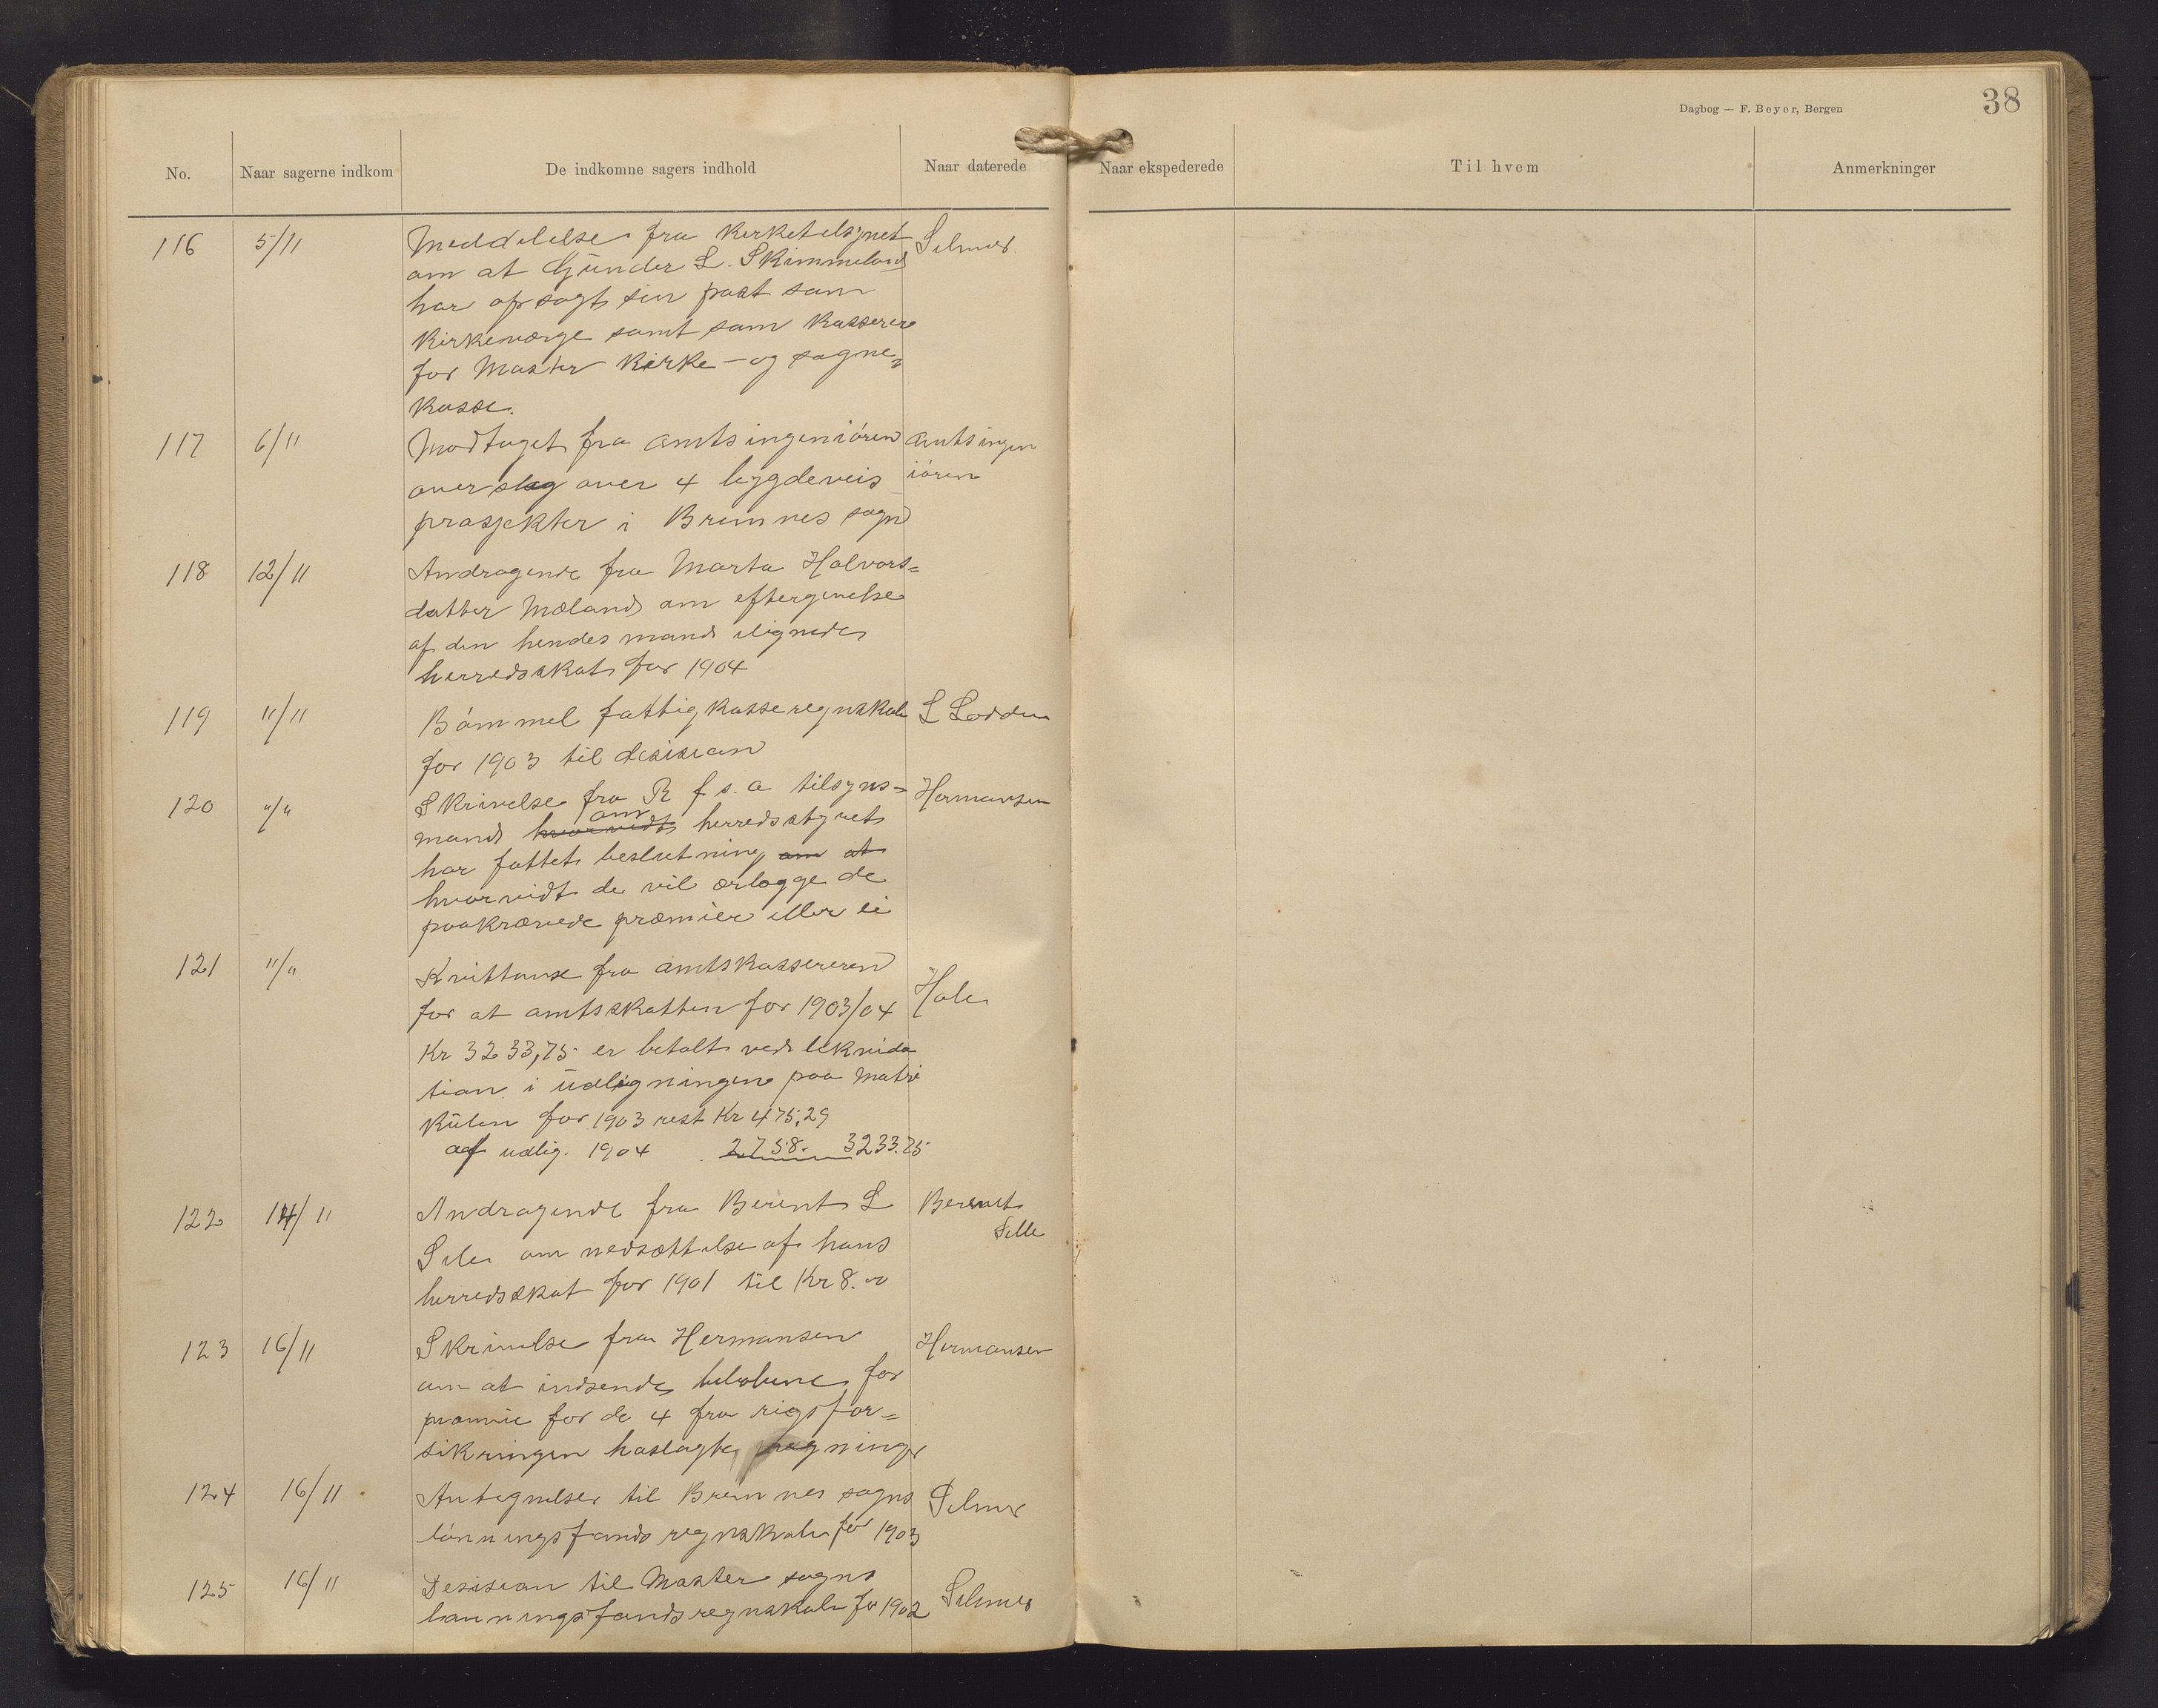 Dagbog — F. Beyer, Bergen
38
No. Naar sagerne indkom De indkomne sagers indhold Naar daterede Naar ekspederede Til hvem Anmerkninger
116 5/11 Meddelelse fra Kirketilsynet Selmer
om at Gunder L. Skimmeland
har opsagt sin post som
Kirkeværge samt som Kasserer
for Moster Kirke- og sogne„
Kasse.
117 6/11 Modtaget fra amtsingeniören amtsingen
overslag over 4 bygdeveis iören
prosjekter i Bremnes sogn
118 12/11 Andragende fra Marta Halvors=
datter Mæland om eftergivelse
af den hendes mand ilignede
herredsskat for 1904
119 "/11 Bömmel fattigkasseregnskab L Lodden
for 1903 til desision
120 "/" Skrivelse fra R f. s. a tilsyns= Hermansen
mand hvorvidt om herredsstyret
har fattet beslutning om at
hvorvidt de vil erlægge de
paakrævede præmier eller ei
121 "/" Kvittanse fra amtskassereren
for at amtsskatten for 1903/04 Hole
Kr 3233,75 er betalt ved likvida
tion i udligningen paa Matri
kulen for 1903 rest Kr 475,29
af udlig. 1904 2758. 3233.75
122 14/11 Andragende fra Berent L Berent
Sele om nedsættelse af hans Selle
herredsskat for 1901 til Kr 8.00
123 16/11 Skrivelse fra Hermansen Hermansen
om at indsende belöbene for
præmie for de 4 fra rigsfor=
sikringen haslagte regninger
124 16/11 Antegnelser til Bremnes sogns Selmer
lönningsfonds regnskab for 1903
125 16/11 Desision til Moster sogns
lönningsfondsregnskab for 1902 Selmer